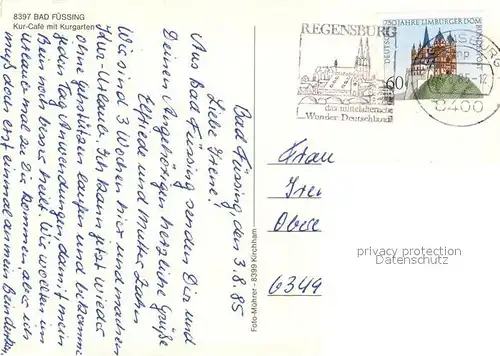 8397 BAD FÜSSING
Kur-Café mit Kurgarten
Bad Füssing, den 3.8.85
Liebe Irene!
Aus Bad Füssing senden Dir und
Deinen Angehörigen herzliche Grüße
Elfriede und Mutter
Wir sind 3 Wochen hier und machen
Kur-Urlaub. Ich kann jetzt wieder
ohne Gehstützen laufen und bekomme
jeden Tag Anwendungen damit mein
Bein noch besser heilt. Wir wollten im
Urlaub mal zu Dir kommen, aber ich
muß doch erst einmal an mein Bein denken.
Foto-Möhrer - 8399 Kirchham
REGENSBURG
das mittelalterliche
Wunder Deutschlands
750 JAHRE LIMBURGER DOM
DEUTSCHE BUNDESPOST
60
8400
Frau
Irene
Obere
6349
privacy protection
Datenschutz